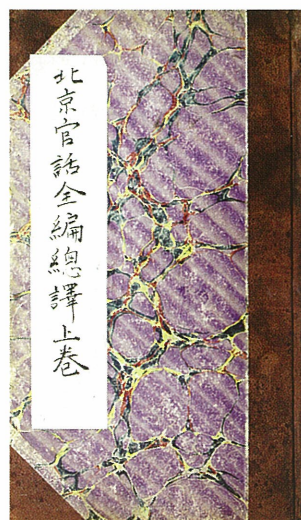 北京官話全編總譯上卷